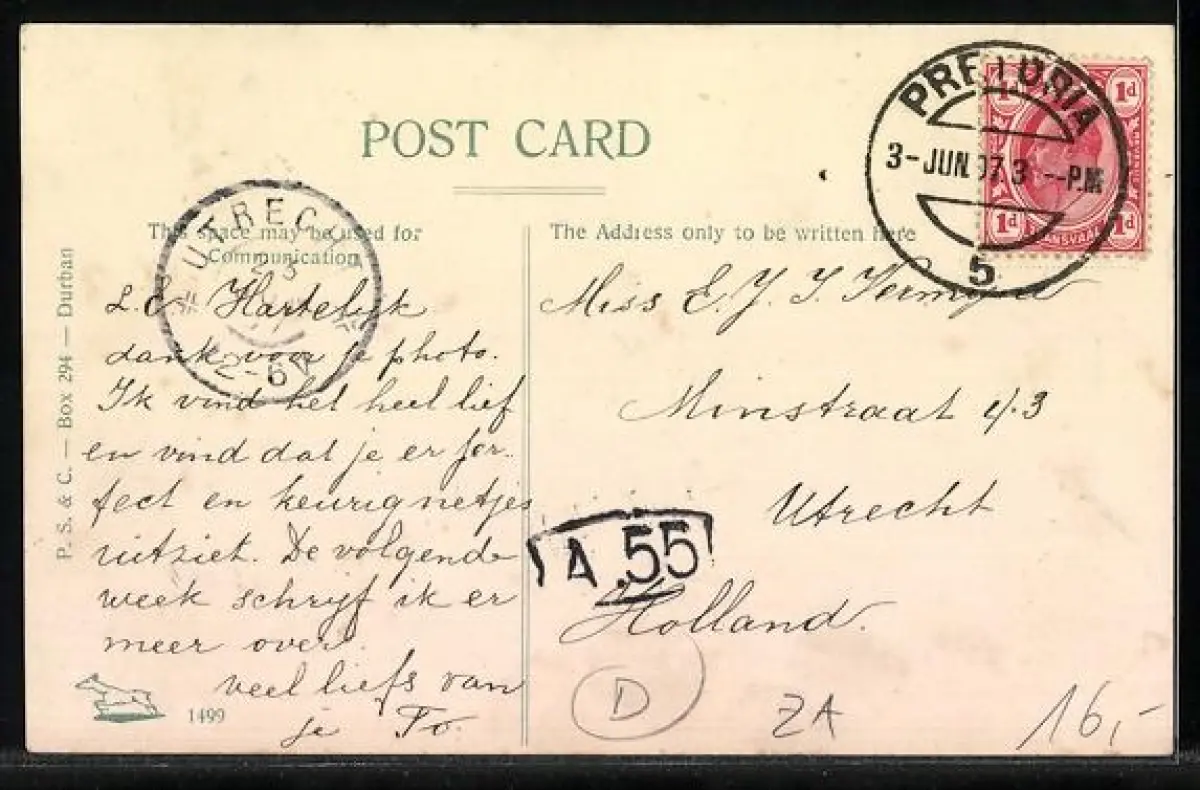 POST CARD
PRETORIA
3-JUN.07.3 --P.M
5
1d 1d
TRANSVAAL
1d 1d
UTRECHT
23
12-6
This space may be used for
Communication
The Address only to be written here
P. S. & C. — Box 294 — Durban
L. E. Hartelijk
dank voor je photo.
Ik vind het heel lief
en vind dat je er per-
fect en keurig netjes
uitziet. De volgende
week schrijf ik er
meer over.
veel liefs van
je To.
1499
Miss E. J. J.
Minstraat 1/3
Utrecht
Holland.
A.55
D
ZA
16,-